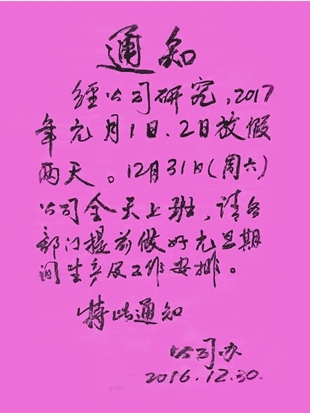 通知
经公司研究,2017
年元月1日、2日放假
两天。12月31日(周六)
公司全天上班,请各
部门提前做好元旦期
间生产及工作安排。
特此通知
公司办
2016.12.30.